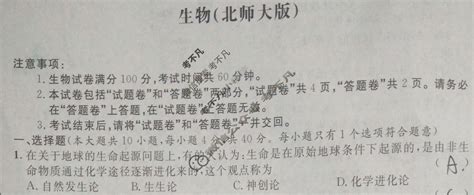 生物(北师大版)
注意事项:
1.生物试卷满分100分,考试时间共60分钟。
2.本试卷包括“试题卷”和“答题卷”两部分,“试题卷”共4页,“答题卷”共2页。请务必
在“答题卷”上答题,在“试题卷”上答题无效。
3.考试结束后,请将“试题卷”和“答题卷”一并交回。
一、选择题(本大题共10小题,每小题4分,共40分。每小题只有1个选项符合题意)
1.在关于地球的生命起源问题上,有的人认为:生命是在原始地球条件下起源的,是由非生
命物质通过化学途径逐渐进化来的,这个观点称为 (A.)
A.自然发生论 B.生生论 C.神创论 D.化学进化论
考不凡